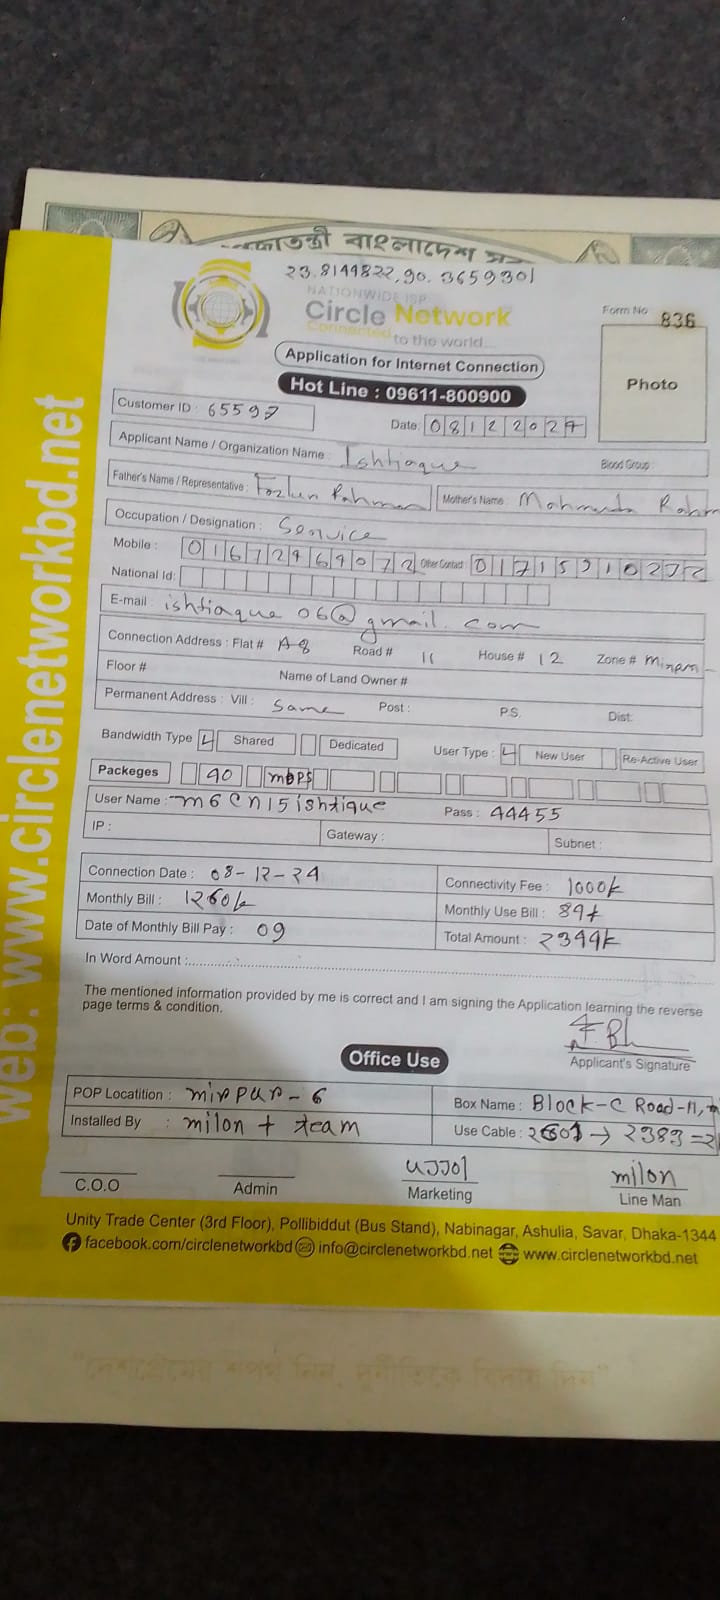 বাংলাদেশ
23.8149822,90.3659301
NATIONWIDE ISP
Circle Network
Connected to the world...
Form No 836
Photo
Application for Internet Connection
Hot Line : 09611-800900
Customer ID : 65597
Date: 08122024
Applicant Name / Organization Name : Ishtiaque
Blood Group :
Father's Name / Representative : Fozlur Rahman Mother's Name : Mahmuda Rahm
Occupation / Designation : Service
Mobile : 01672969072 Other Contact : 01715310272
National Id:
E-mail : ishtiaque06@gmail.com
Connection Address : Flat # A8 Road # 11 House # 12 Zone #
Floor # Name of Land Owner #
Permanent Address : Vill : Same Post : P.S. Dist:
Bandwidth Type Shared Dedicated User Type : New User Re-Active User
Packeges 40 mbps
User Name : m6cn15ishtique Pass : 44455
IP : Gateway : Subnet :
Connection Date : 08-12-24 Connectivity Fee : 1000k
Monthly Bill : 1260k Monthly Use Bill : 84k
Date of Monthly Bill Pay : 09 Total Amount : 2344k
In Word Amount :
The mentioned information provided by me is correct and I am signing the Application learning the reverse
page terms & condition.
Applicant's Signature
Office Use
POP Locatition : mirpur-6 Box Name : Block-C Road-11,
Installed By : milon + team Use Cable : → 2383 =
C.O.O Admin ujjol Marketing milon Line Man
Unity Trade Center (3rd Floor), Pollibiddut (Bus Stand), Nabinagar, Ashulia, Savar, Dhaka-1344
facebook.com/circlenetworkbd info@circlenetworkbd.net www.circlenetworkbd.net
web: www.circlenetworkbd.net
"দেশপ্রেমের শপথ নিন, দুর্নীতিকে বিদায় দিন"